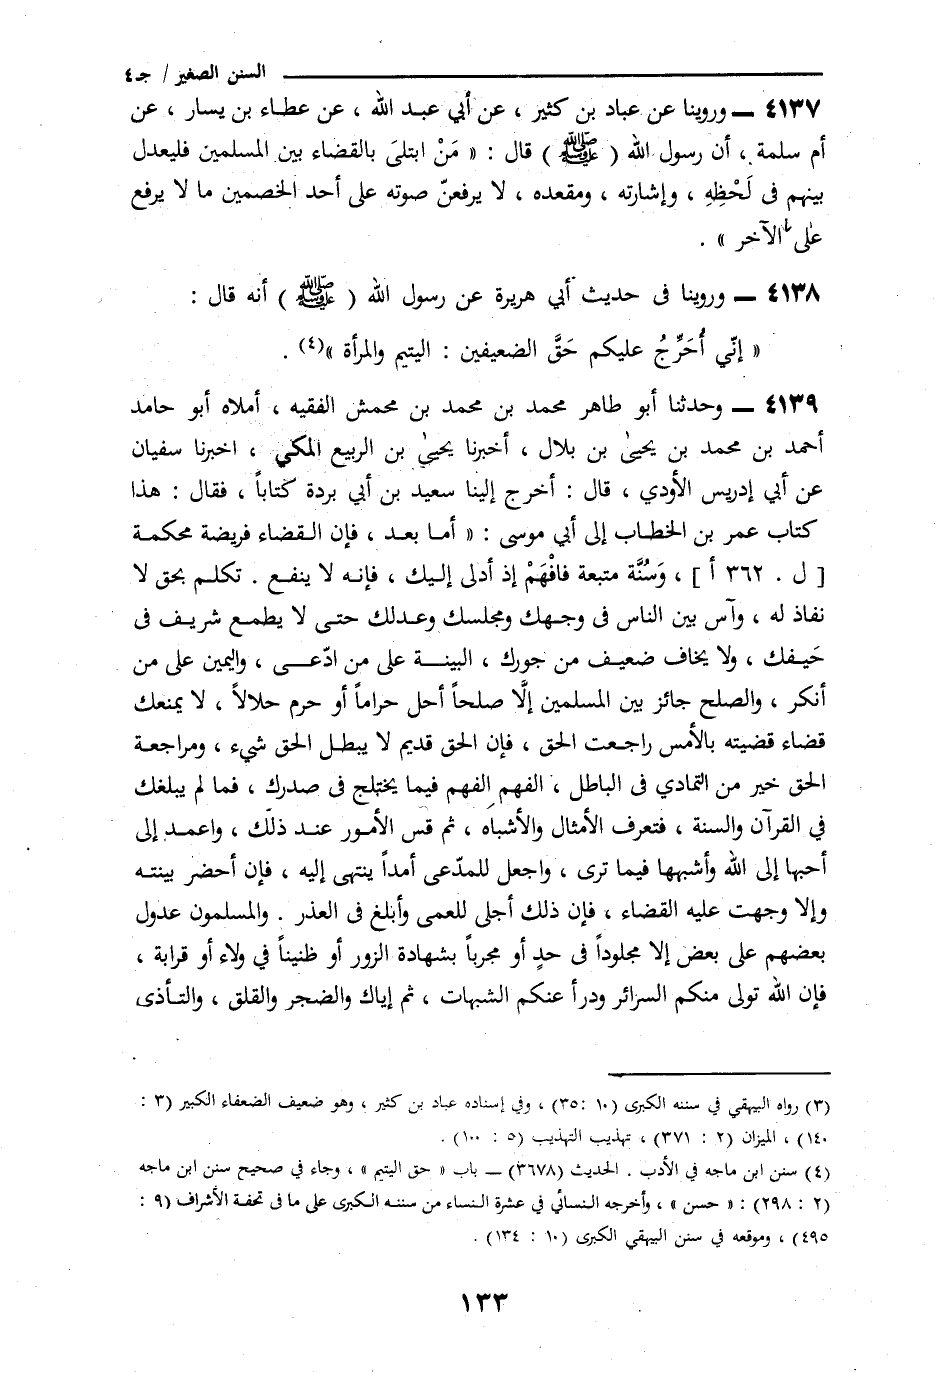 السنن الصغير / جـ٤
٤١٣٧ ــ وروينا عن عباد بن كثير ، عن أبي عبد الله ، عن عطاء بن يسار ، عن
أم سلمة ، أن رسول الله ( ﷺ ) قال : « مَنْ ابتلىَ بالقضاء بين المسلمين فليعدل
بينهم فى لَحْظِهِ ، وإشارته ، ومقعده ، لا يرفعنّ صوته على أحد الخصمين ما لا يرفع
على الآخر » .
٤١٣٨ ــ وروينا فى حديث أبي هريرة عن رسول الله ( ﷺ ) أنه قال :
« إنّي أُحَرِّجُ عليكم حَقَّ الضعيفين : اليتيم والمرأة »(٤) .
٤١٣٩ ــ وحدثنا أبو طاهر محمد بن محمد بن محمش الفقيه ، أملاه أبو حامد
أحمد بن محمد بن يحيىٰ بن بلال ، أخبرنا يحيىٰ بن الربيع المكي ، اخبرنا سفيان
عن أبي إدريس الأودي ، قال : أخرج إلينا سعيد بن أبي بردة كتاباً ، فقال : هذا
كتاب عمر بن الخطاب إلى أبي موسى : « أما بعد ، فإن القضاء فريضة محكمة
[ ل . ٣٦٢ أ ] ، وَسُنَّة متبعة فافْهَمْ إذ أدلى إليك ، فإنه لا ينفع . تكلم بحق لا
نفاذ له ، وآس بين الناس فى وجهك ومجلسك وعدلك حتى لا يطمع شريف فى
حَيفك ، ولا يخاف ضعيف من جورك ، البينة على من ادّعى ، واليمين على من
أنكر ، والصلح جائز بين المسلمين إلَّا صلحاً أحل حراماً أو حرم حلالاً ، لا يمنعك
قضاء قضيته بالأمس راجعت الحق ، فإن الحق قديم لا يبطل الحق شيء ، ومراجعة
الحق خير من التمادي فى الباطل ، الفهم الفهم فيما يختلج فى صدرك ، فما لم يبلغك
في القرآن والسنة ، فتعرف الأمثال والأشباه ، ثم قس الأمور عند ذلك ، واعمد إلى
أحبها إلى الله وأشبهها فيما ترى ، واجعل للمدّعى أمداً ينتهى إليه ، فإن أحضر بينته
وإلا وجهت عليه القضاء ، فإن ذلك أجلى للعمى وأبلغ فى العذر . والمسلمون عدول
بعضهم على بعض إلا مجلوداً فى حدٍ أو مجرباً بشهادة الزور أو ظنيناً في ولاء أو قرابة ،
فإن الله تولى منكم السرائر ودرأ عنكم الشبهات ، ثم إياك والضجر والقلق ، والتأذى
(٣) رواه البيهقي في سننه الكبرى (١٠ :٣٥) ، وفي إسناده عباد بن كثير ، وهو ضعيف الضعفاء الكبير (٣ :
١٤٠) ، الميزان (٢ : ٣٧١) ، تهذيب التهذيب (٥ : ١٠٠) .
(٤) سنن ابن ماجه في الأدب . الحديث (٣٦٧٨) ــ باب « حق اليتيم » ، وجاء في صحيح سنن ابن ماجه
(٢ : ٢٩٨) : « حسن » ، وأخرجه النسائي في عشرة النساء من سننه الكبرى على ما فى تحفة الأشراف (٩ :
٤٩٥) ، وموقعه في سنن البيهقي الكبرى (١٠ : ١٣٤) .
١٣٣